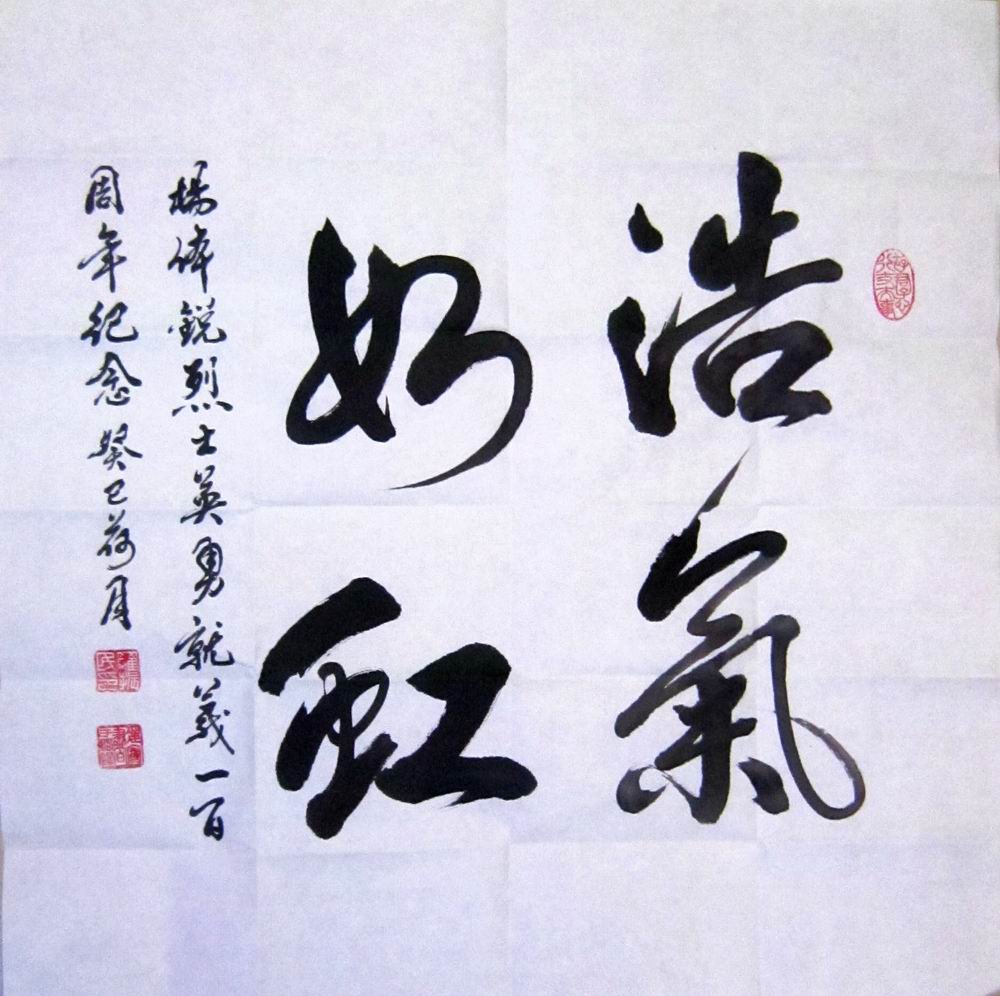 浩氣
如虹
楊偉銳烈士英勇就義一百
周年紀念癸巳荷月